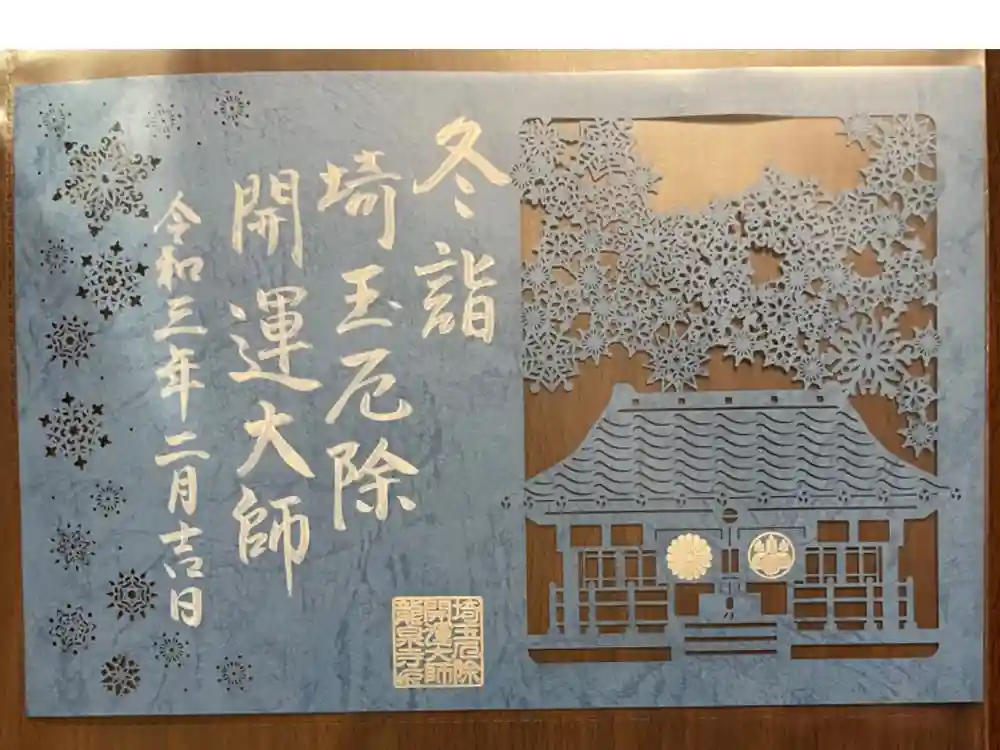 冬詣
埼玉厄除
開運大師
令和三年二月吉日
埼玉厄除
開運大師
龍泉寺印